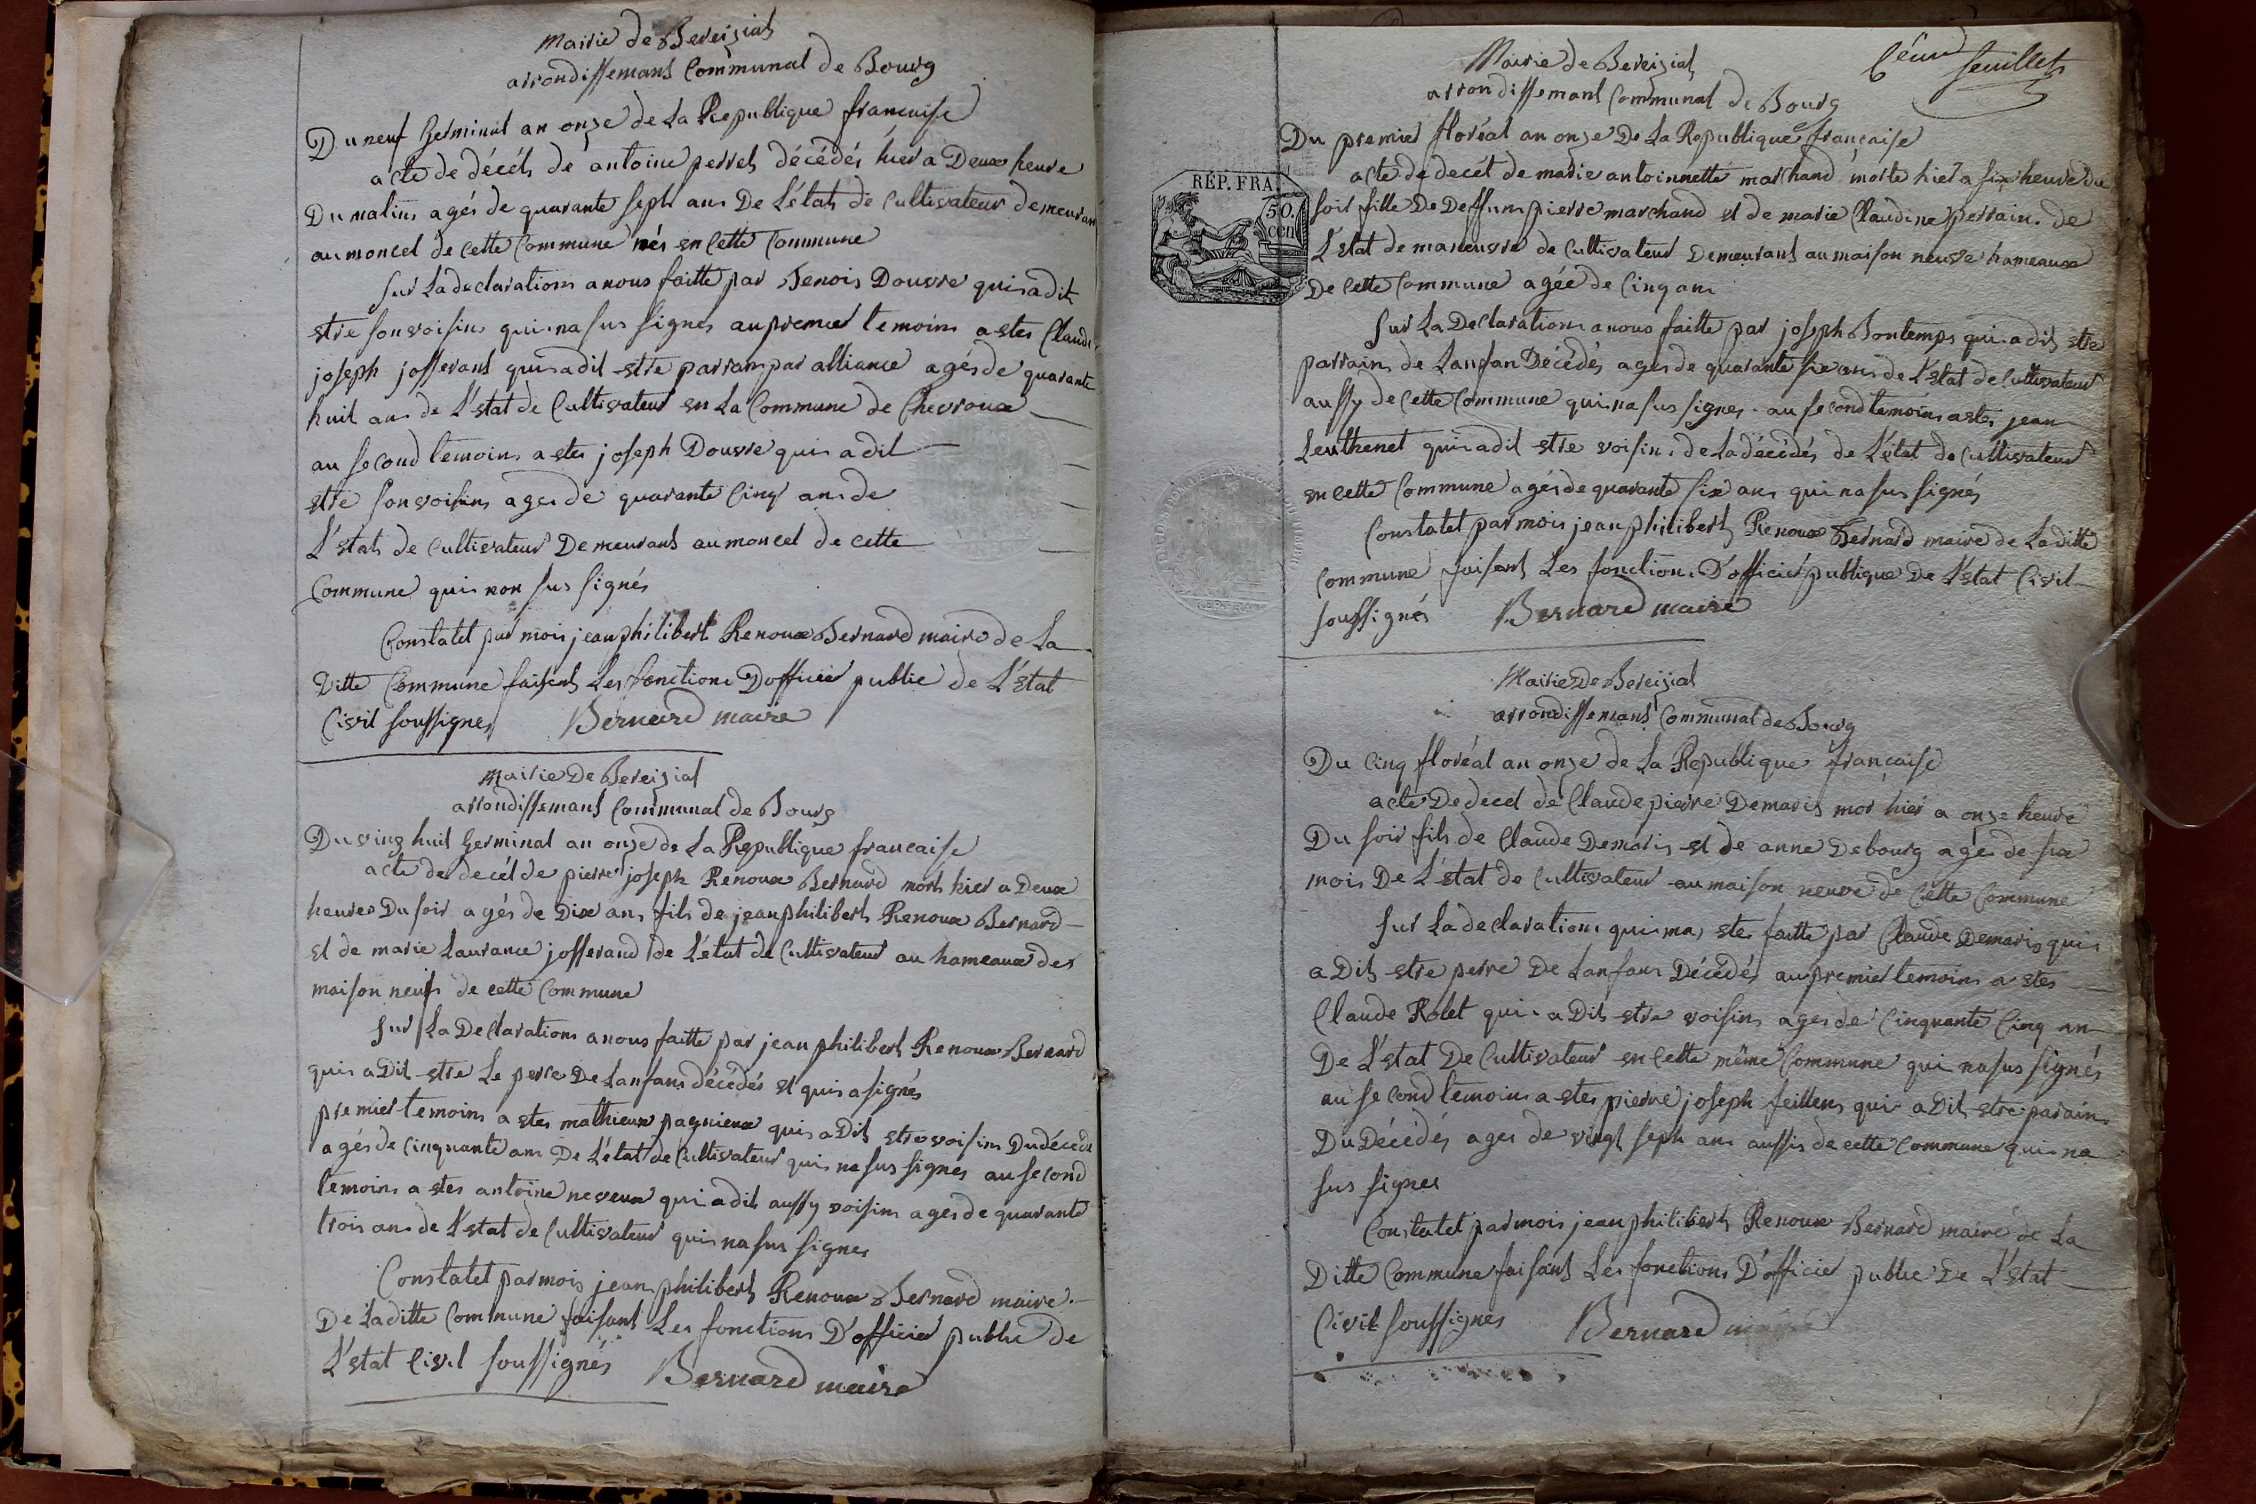 Mairie de Bereiziat
arrondissemant Communal de Bourg
Du neuf Germinal an onze de La Republique francaise
acte de décéts de antoine perret décédés hier a Deux heure
Du matins agés de quarante sept ans De L'état de Cultivateur demeurant
au moncel de cette Commune nés en Cette Commune
Sur La declarations a nous faitte par Benois Douvre quis a dit
stre son voisins quis na sus signes au premier temoins a stes Claude
joseph josserant quis a dit stre parrans par alliance agés de quarante
huit ans de L'stat de Cultivateur en La Commune de Chevroux
au second temoins a stes joseph Douvre quis a dit
stre son voisins ages de quarante Cinq ans de
L'stat de Cultivateur Demeurant au moncel de cette
Commune quis non sus signés
Constatet par mois jean philibert Renoux Bernard maire de La
Ditte Commune faisant Les fonctions D'officier public de L'stat
Civil soussignes Bernard maire
Mairie De Bereiziat
arrondissemant Communal de Bourg
Du ving huit Germinal an onze de La Republique francaise
acte de decét de pierre joseph Renoux Bernard mort hier a Deux
heures Du soir agés de Dix ans fils de jean philibert Renoux Bernard
et de marie Laurance josserand de L'état de Cultivateur au hameaux des
maison neufs de cette Commune
Sur La Declarations a nous faitte par jean philibert Renoux Bernard
quis a Dit stre Le perre De Lanfans décédés et quis a signés
premier temoins a stes mathieux pagnieux quis a Dit stre voisins Du décédé
agés de cinquante ans De L'état de Cultivateur quis na sus signes au second
temoins a stes antoine neveux qui a dit aussy voisins ages de quarante
trois ans de L'stat de Cultivateur quis na sus signes
Constatet par mois jean philibert Renoux Bernard maire
De Laditte Commune faisant Les fonctions D'officier public de
L'stat Civil soussignés Bernard maire
Mairie de Bereiziat
arrondissemant Communal de Bourg
feuillet
Du premier floréal an onze De La Republique française
acte de decét de marie antoinnette marchand morte hier a six heure du
RÉP. FRA.
50.
cen
soir fille De Deffunt pierre marchand et de marie Claudine perrain de
L'stat de maneuvre de Cultivateur Demeurant au maison neuve hameaux
De Cette Commune agée de Cinq ans
Sur La Declarations a nous faitte par joseph Bontemps quis a dit stre
parrain de Lanfan Décédés ages de quarante six ans de L'stat de Cultivateur
aussy de Cette Commune quis na sus signes au second temoins a stes jean
Leuthenet quis a dit stre voisins de La décédés de L'état de Cultivateur
en Cette Commune agés de quarante six ans qui na sus signés
Constatet par mois jean philibert Renoux Bernard maire de La ditte
Commune faisant Les fonctions D'officier publique De L'stat Civil
soussignés Bernard maire
Mairie De Bereiziat
arrondissemant Communal de Bourg
Du Cinq floréal an onze de La Republique francaise
acte De decet de Claude pierre Demaris mor hier a onze heure
Du soir fils de Claude Demaris et de anne Debourg agés de six
mois De L'état de Cultivateur au maison neuve de Cette Commune
Sur La declarations quis mas stes faitte par Claude Demaris quis
a Dit stre perre De Lanfans Décédés au premier temoins a stes
Claude Rolet quis a Dit stre voisins ages de Cinquante Cinq an
De L'stat De Cultivateur en Cette même Commune qui na sus signés
au second temoins a stes pierre joseph feillens qui a Dit stre parain
Du Décédés ages de vingt sept ans aussis de cette Commune quis na
sus signes
Constatet par mois jean philibert Renoux Bernard maire de La
Ditte Commune faisant Les fonctions D'officier public De L'stat
Civil soussignes Bernard maire